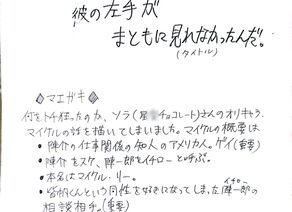 彼の左手が
まともに見れなかったんだ。
(タイトル)
◇マエガキ◇
何をトチ狂ったのか、ソラ(星 チョコレート)さんのオリキャラ、
マイケルの話を描いてしまいました。マイケルの概要は
・陣介の仕事関係の知人のアメリカ人。ゲイ(重要)
・陣介をスケ、陣一郎をイチローと呼ぶ。
・本名はマイケル・リー。
・皆的くんという同性を好きになってしまった陣一郎の
イチロー
相談相手。(重要)